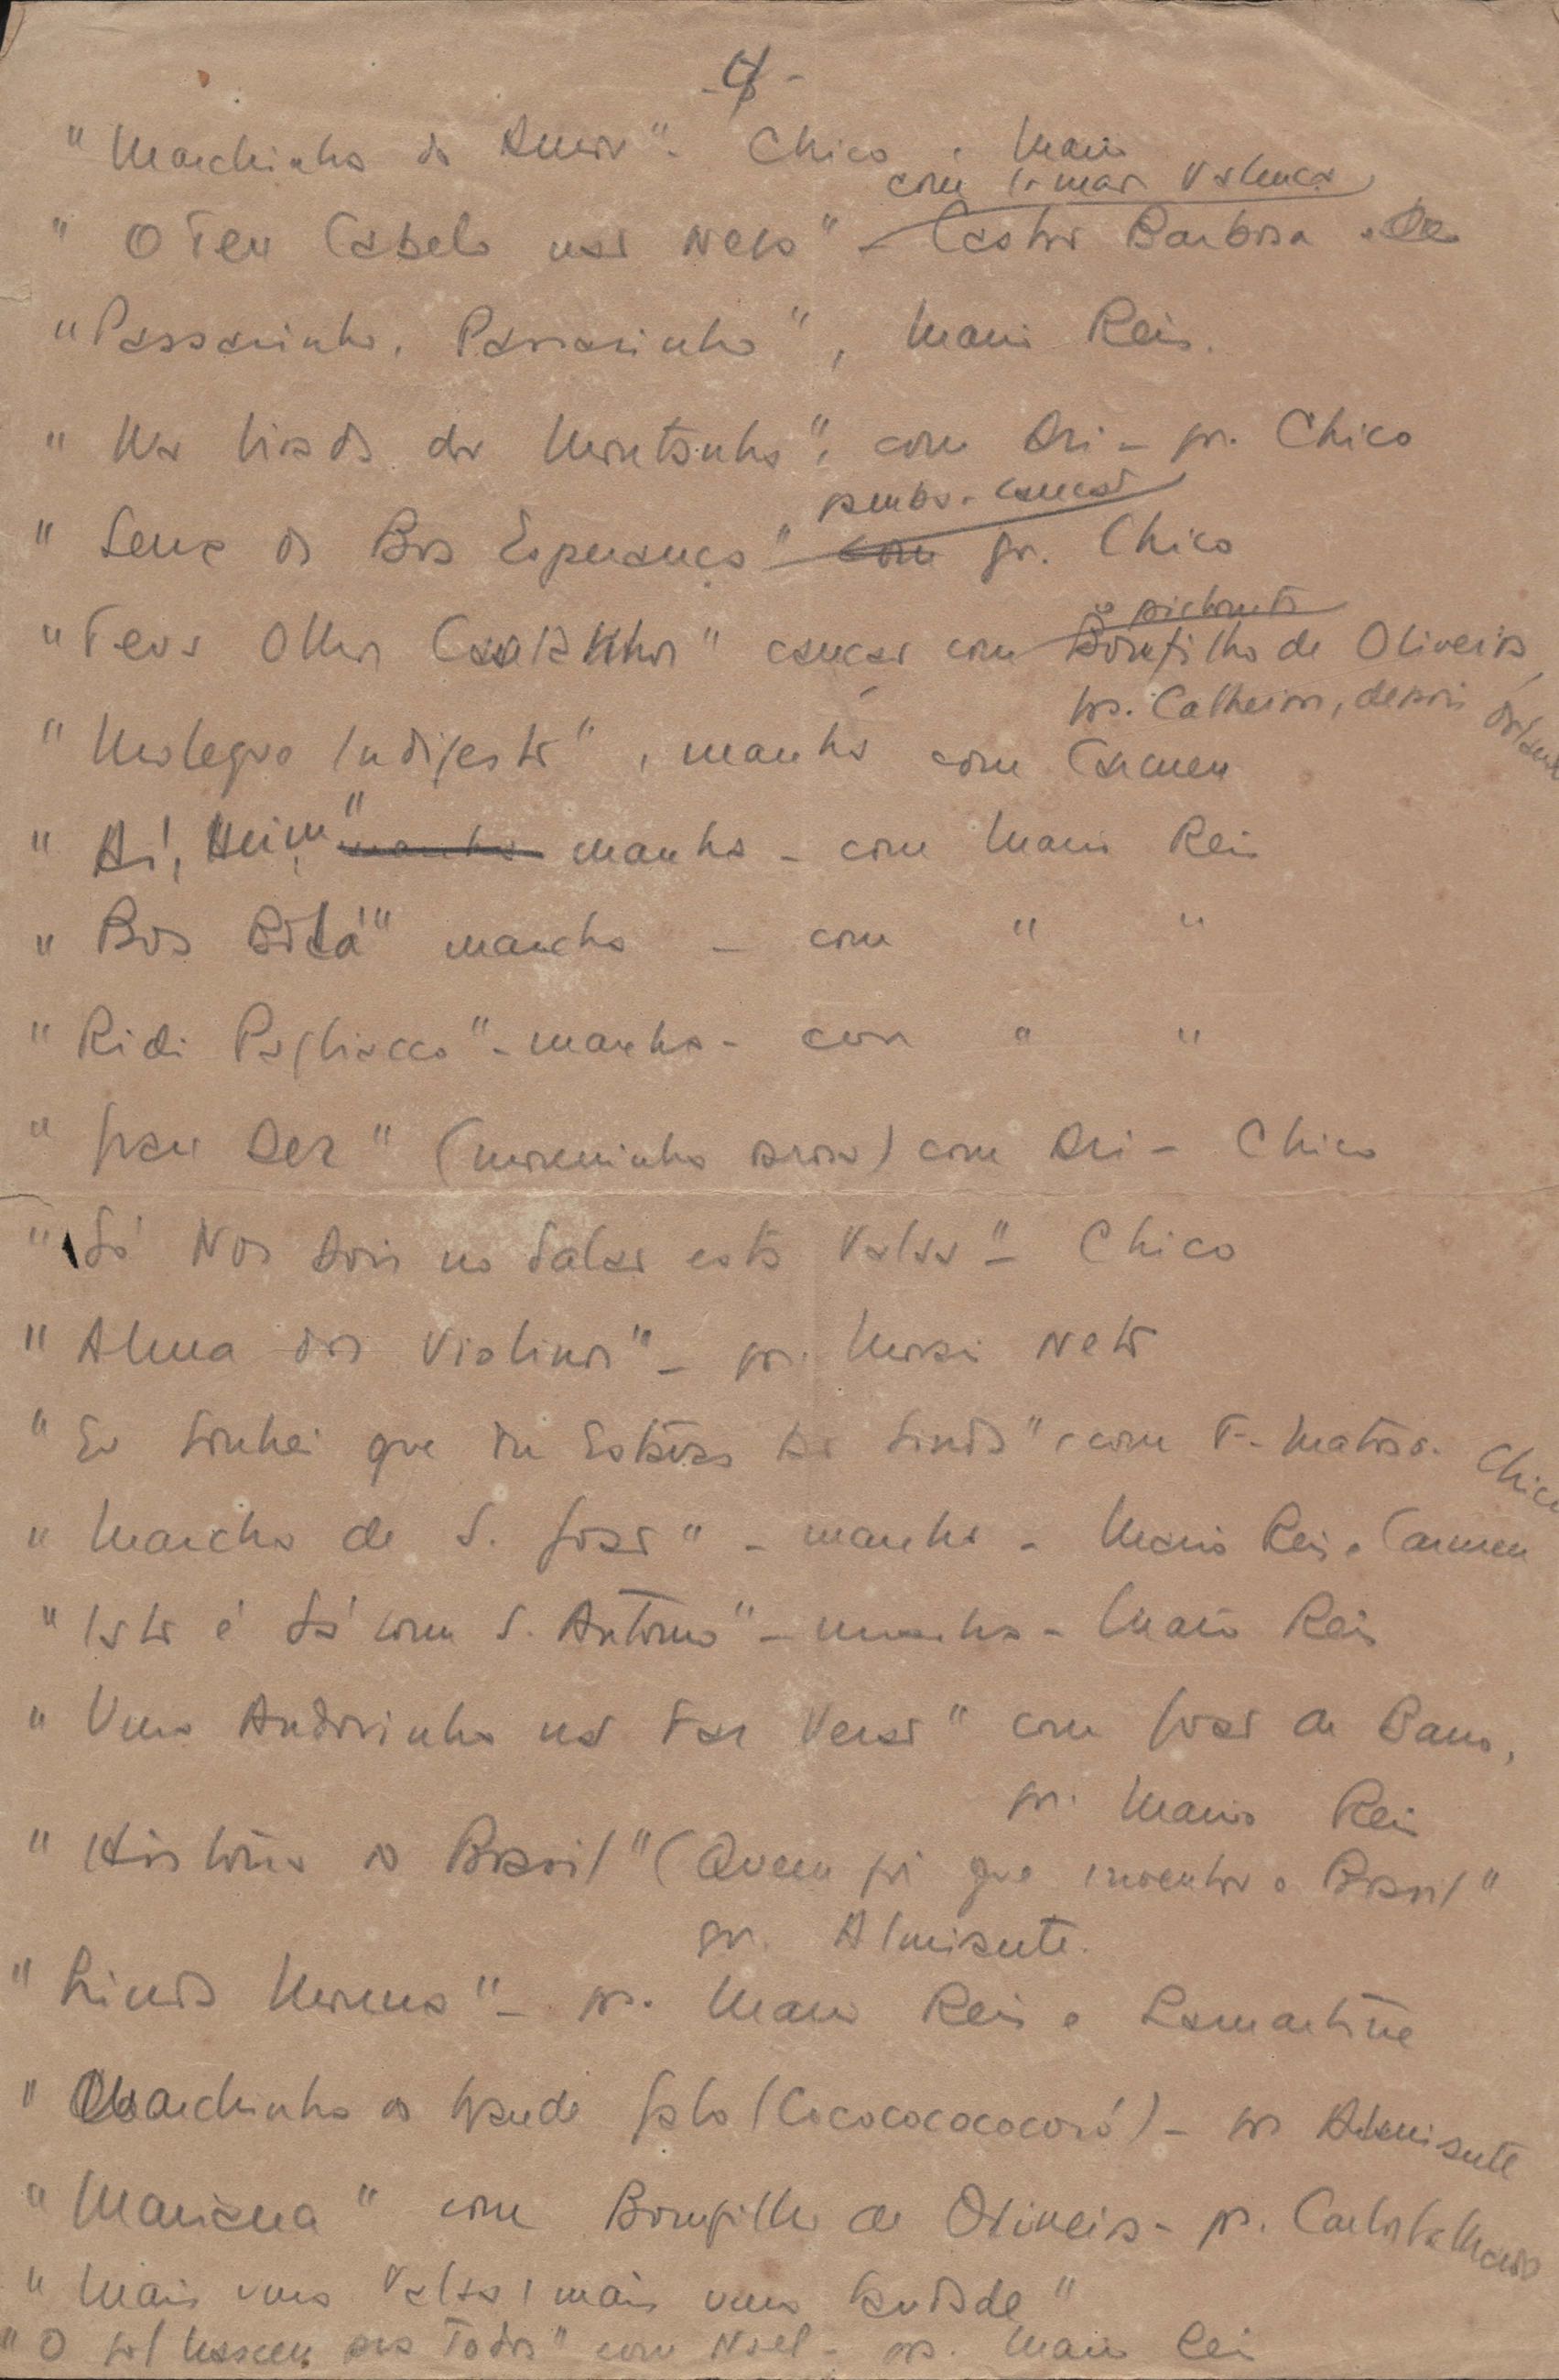 "Marchinha do Amor" - Chico e Mario
com Irmãos Valença
"O Teu Cabelo não Nega" - Castro Barbosa
"Passarinho, Passarinho", Mario Reis.
"Na Virada da Montanha", com Ari - pr. Chico
samba-canção
"Serra da Boa Esperança" com pr. Chico
"Teus Olhos Castanhos" canção com Bomfilho de Oliveira,
pr. Calheiros, depois Orlando
"Moleque Indigesto", marcha com Carmen
"Aí, Hein!" marcha marcha - com Mario Reis
"Boa Bola" marcha - com " "
"Ridi Pagliacco" - marcha - com " "
"Grau Dez" (moreninha prosa) com Ari - Chico
"Só Nós Dois no Salão esta Valsa" - Chico
"Alma dos Violinos" - pr. Moraci Neto
"Eu Sonhei que Tu Estavas tão Linda", com F. Matoso. Chico
"Marcha de S. João" - marcha - Mario Reis e Carmen
"Isto é lá com S. Antonio" - marcha - Mario Reis
"Uma Andorinha não Faz Verão" com João de Barro,
pr. Mario Reis
"História do Brasil" (Quem foi que inventou o Brasil"
pr. Almirante.
"Linda Morena" - pr. Mario Reis e Lamartine
"Marchinha do Grande Galo (Cocococococoró) - pr Almirante
"Mariana" com Bomfilho de Oliveira - pr. Carlos Galhardo
"Mais uma Valsa, mais uma Saudade"
"O Sol Nasceu pra Todos" com Noel - pr. Mario Reis